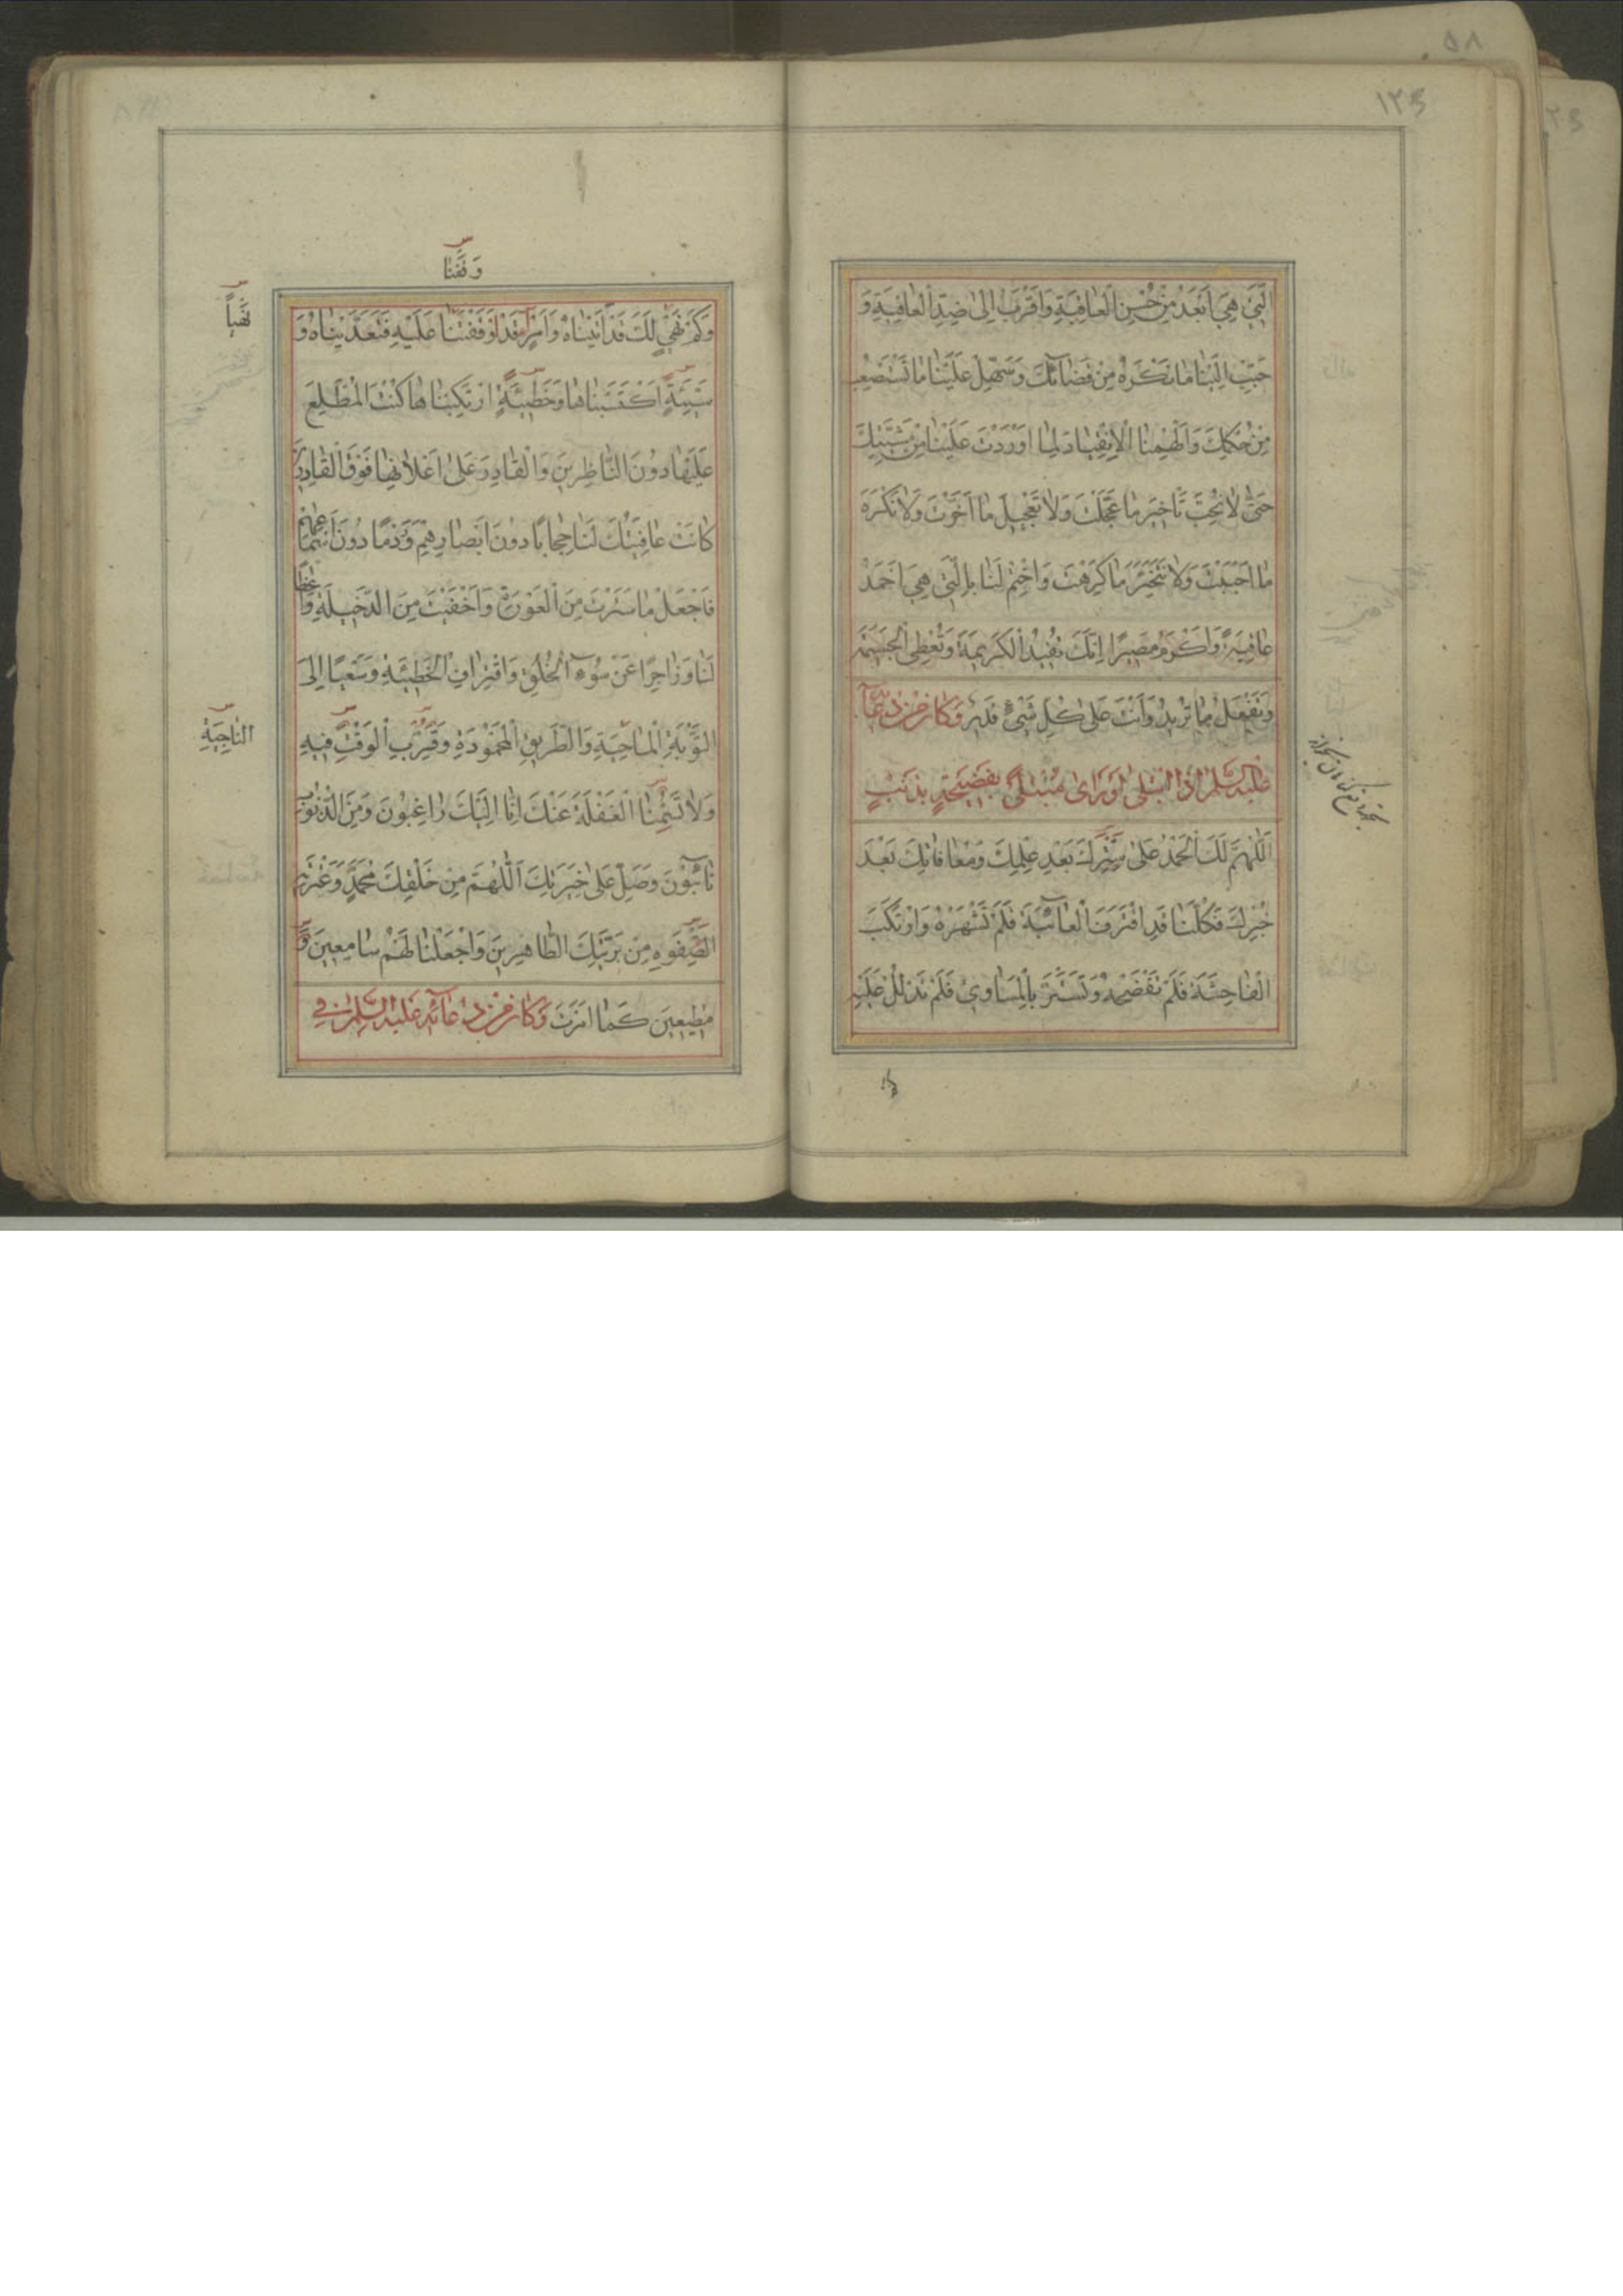 ١٢٥
الَّتِي هِيَ اَبْعَدُ مِنْ حُسْنِ الْعَافِيَةِ وَاَقْرَبُ اِلىٰ ضِدِّ الْعَافِيَةِ وَ
حَبِّبْ اِلَيْنَا مَا نَكْرَهُ مِنْ قَضَائِكَ وَسَهِّلْ عَلَيْنَا مَا نَسْتَصْعِبُ
مِنْ حُكْمِكَ وَاَلْهِمْنَا الْاِنْقِيَادَ لِمَا اَوْرَدْتَ عَلَيْنَا مِنْ مَشِيَّتِكَ
حَتّىٰ لَا نُحِبَّ تَأْخِيرَ مَا عَجَّلْتَ وَلَا تَعْجِيلَ مَا اَخَّرْتَ وَلَا نَكْرَهَ
مَا اَحْبَبْتَ وَلَا نَتَخَيَّرَ مَا كَرِهْتَ وَاخْتِمْ لَنَا بِالَّتِي هِيَ اَحْمَدُ
عَافِيَةً وَاَكْرَمُ مَصِيرًا اِنَّكَ تُفِيدُ الْكَرِيمَةَ وَتُعْطِي الْجَسِيمَةَ
وَتَفْعَلُ مَا تُرِيدُ وَاَنْتَ عَلىٰ كُلِّ شَيْءٍ قَدِيرٌ وَكَانَ مِنْ دُعَائِهِ
عَلَيْهِ السَّلَامُ اِذَا ابْتُلِيَ اَوْ رَاىٰ مُبْتَلىً بِفَضِيحَةٍ بِذَنْبٍ
اَللّٰهُمَّ لَكَ الْحَمْدُ عَلىٰ سِتْرِكَ بَعْدَ عِلْمِكَ وَمُعَافَاتِكَ بَعْدَ
خُبْرِكَ فَكُلُّنَا قَدِ اقْتَرَفَ الْعَائِبَةَ فَلَمْ تَشْهَرْهُ وَارْتَكَبَ
الْفَاحِشَةَ فَلَمْ تَفْضَحْهُ وَتَسَتَّرَ بِالْمَسَاوِي فَلَمْ تَدْلُلْ عَلَيْهِ
وَقَفْتَنَا
نَهْيٍ
وَكَمْ نَهْيٍ لَكَ قَدْ اَتَيْنَاهُ وَاَمْرٍ قَدْ اَوْقَفْتَنَا عَلَيْهِ فَتَعَدَّيْنَاهُ وَ
سَيِّئَةٍ اكْتَسَبْنَاهَا وَخَطِيئَةٍ ارْتَكَبْنَاهَا كُنْتَ الْمُطَّلِعَ
عَلَيْهَا دُونَ النَّاظِرِينَ وَالْقَادِرَ عَلىٰ اِعْلَانِهَا فَوْقَ الْقَادِرِينَ
كَانَتْ عَافِيَتُكَ لَنَا حِجَابًا دُونَ اَبْصَارِهِمْ وَرَدْمًا دُونَ اَسْمَاعِهِمْ
فَاجْعَلْ مَا سَتَرْتَ مِنَ الْعَوْرَةِ وَاَخْفَيْتَ مِنَ الدَّخِيلَةِ وَاعِظًا
لَنَا وَزَاجِرًا عَنْ سُوءِ الْخُلُقِ وَاقْتِرَافِ الْخَطِيئَةِ وَسَعْيًا اِلَى
التَّوْبَةِ الْمَاحِيَةِ وَالطَّرِيقِ الْمَحْمُودَةِ وَقَرِّبِ الْوَقْتَ فِيهِ
النَّاجِيَةِ
وَلَا تَسُمْنَا الْغَفْلَةَ عَنْكَ اِنَّا اِلَيْكَ رَاغِبُونَ وَمِنَ الذُّنُوبِ
تَائِبُونَ وَصَلِّ عَلىٰ خِيَرَتِكَ اَللّٰهُمَّ مِنْ خَلْقِكَ مُحَمَّدٍ وَعِتْرَتِهِ
الصِّفْوَةِ مِنْ بَرِيَّتِكَ الطَّاهِرِينَ وَاجْعَلْنَا لَهُمْ سَامِعِينَ وَ
مُطِيعِينَ كَمَا اَمَرْتَ وَكَانَ مِنْ دُعَائِهِ عَلَيْهِ السَّلَامُ فِي